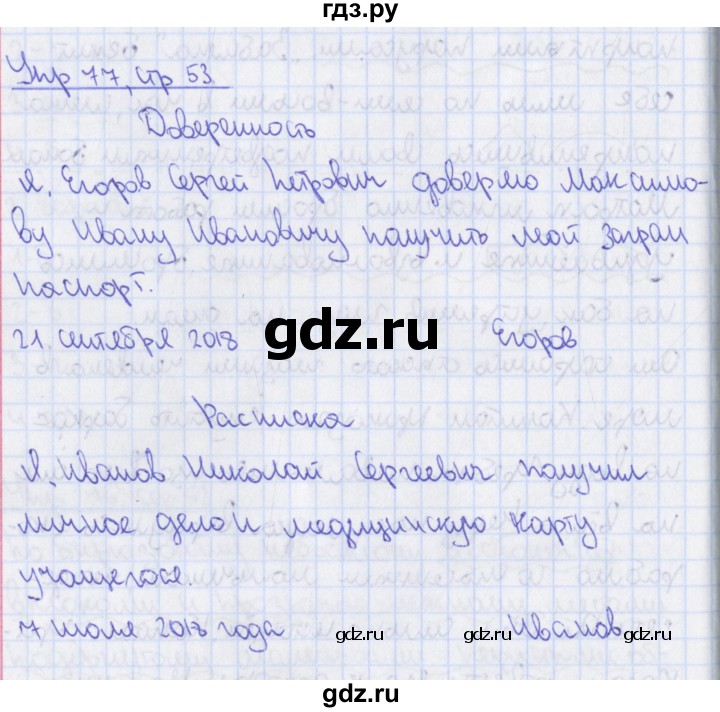 гдз.ру
Упр 77, стр 53
Доверенность
Я, Егоров Сергей Петрович доверяю Максимо-
ву Ивану Ивановичу получить мой загран
паспорт.
21 сентября 2018 Егоров
gdz.ru
Расписка
Я, Иванов Николай Сергеевич получил
личное дело и медицинскую карту
учащегося.
7 июля 2018 года Иванов
gdz.ru gdz.ru
gdz.ru